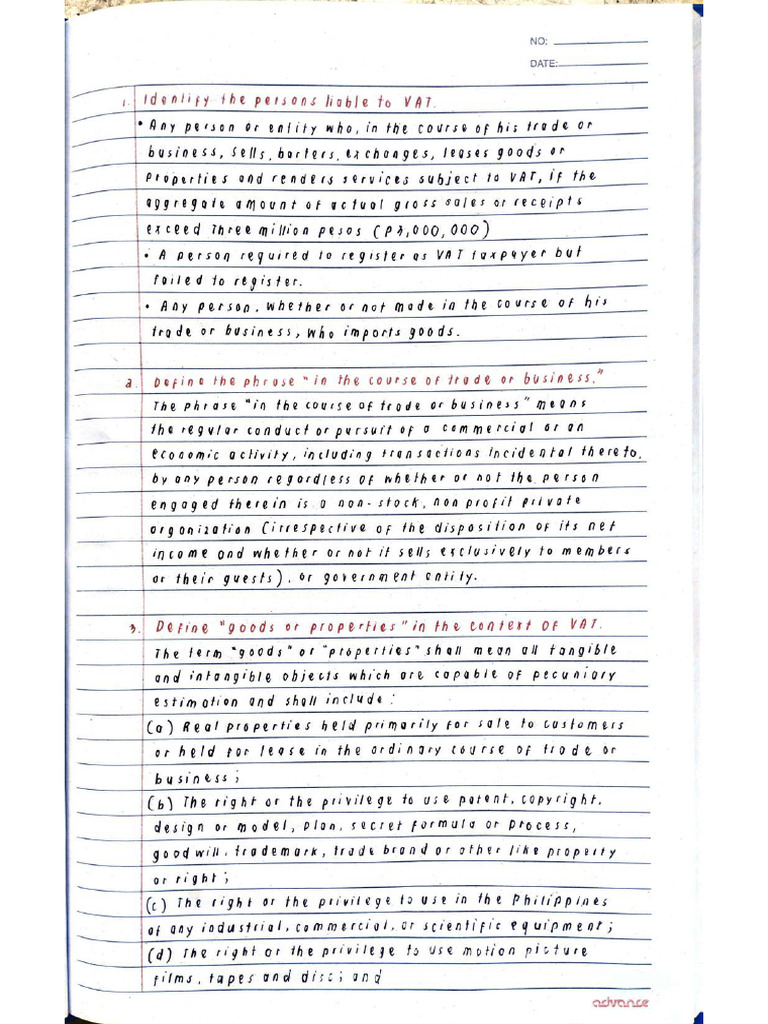 NO:
DATE:
1. Identify the persons liable to VAT.
• Any person or entity who, in the course of his trade or
business, sells, barters, exchanges, leases goods or
properties and renders services subject to VAT, if the
aggregate amount of actual gross sales or receipts
exceed Three million pesos (₱3,000,000)
• A person required to register as VAT taxpayer but
failed to register.
• Any person, whether or not made in the course of his
trade or business, who imports goods.
2. Define the phrase "in the course of trade or business."
The phrase "in the course of trade or business" means
the regular conduct or pursuit of a commercial or an
economic activity, including transactions incidental thereto,
by any person regardless of whether or not the person
engaged therein is a non-stock, non profit private
organization (irrespective of the disposition of its net
income and whether or not it sells exclusively to members
or their guests), or government entity.
3. Define "goods or properties" in the context of VAT.
The term "goods" or "properties" shall mean all tangible
and intangible objects which are capable of pecuniary
estimation and shall include:
(a) Real properties held primarily for sale to customers
or held for lease in the ordinary course of trade or
business;
(b) The right or the privilege to use patent, copyright,
design or model, plan, secret formula or process,
goodwill, trademark, trade brand or other like property
or right;
(c) The right or the privilege to use in the Philippines
of any industrial, commercial, or scientific equipment;
(d) The right or the privilege to use motion picture
films, tapes and disc; and
advance